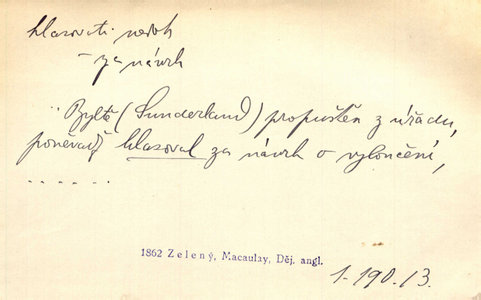 hlasovati
– za návrh
„Bylť (Sunderland) propuštěn z úřadu,
poněvadž hlasoval za návrh o vyloučení,
......
1862 Zelený, Macaulay, Děj. angl.
1.190.13.